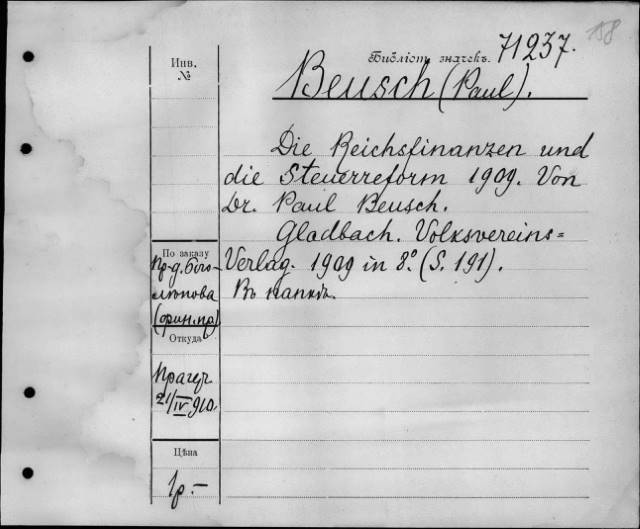 158
Библіот. значекъ. 71237.
Инв.
№
Beusch (Paul).
Die Reichsfinanzen und
die Steuerreform 1909. Von
Dr. Paul Beusch.
Gladbach. Volksvereins=
Verlag. 1909 in 8°. (S. 191).
Въ папкѣ.
По заказу
Пр-д. Бого-
лѣпова
(фин. пр)
Откуда
Прагеръ
21/IV 910.
Цѣна
1р.-